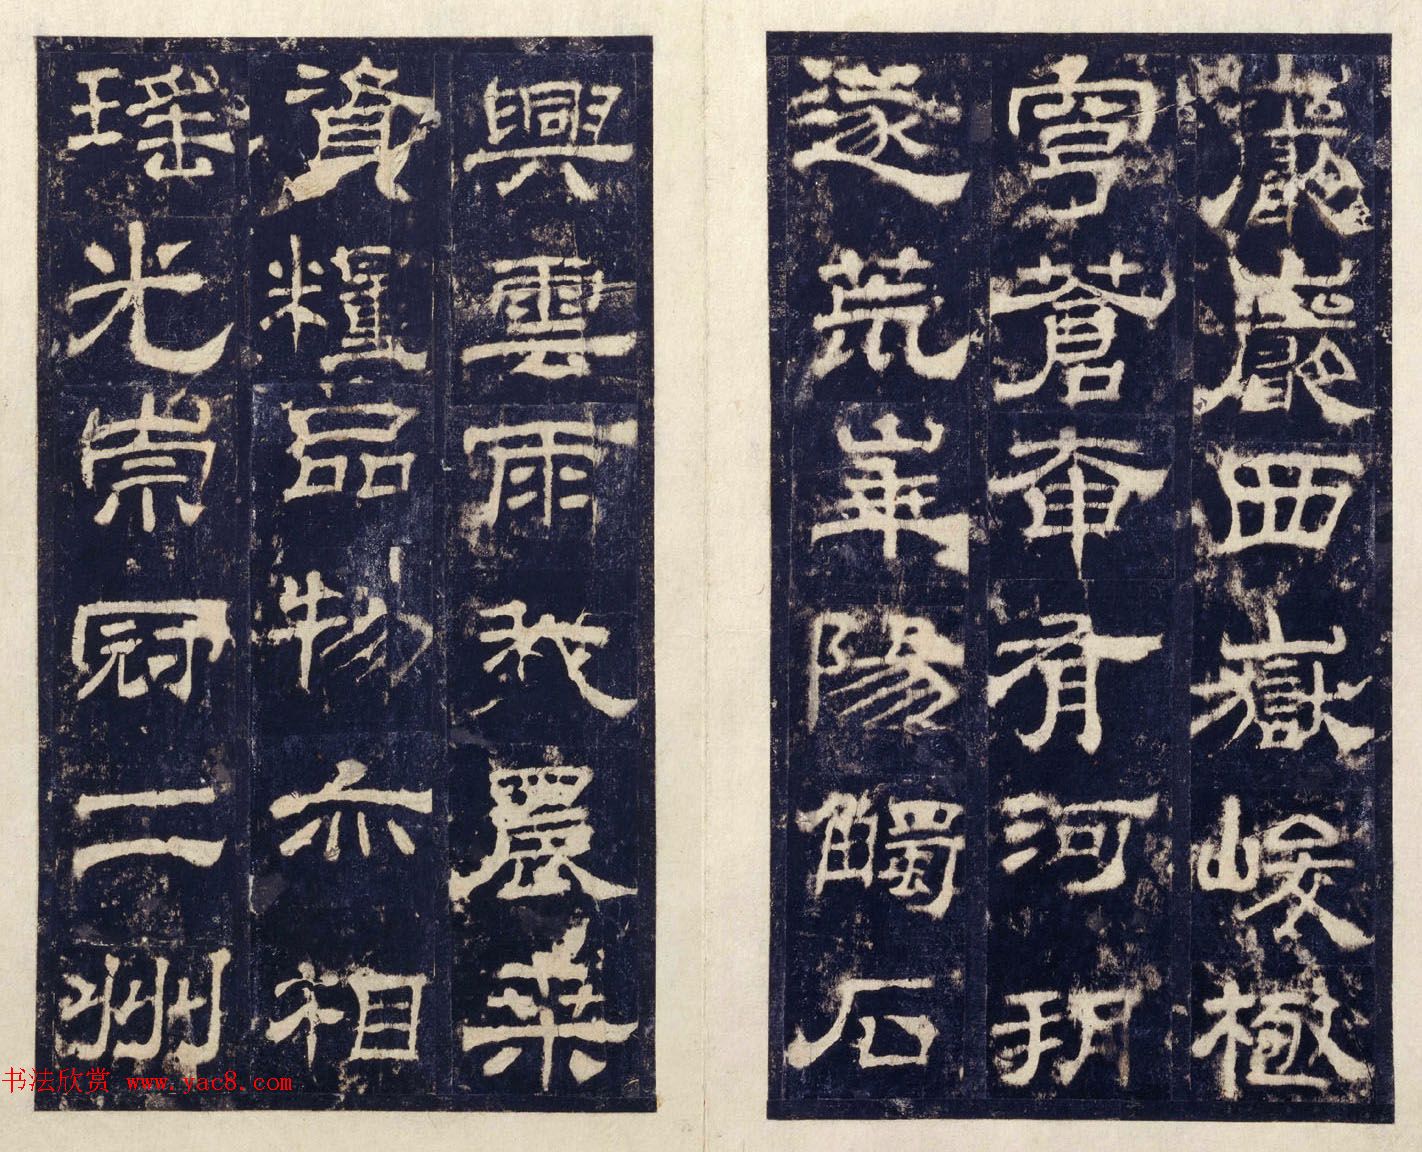 巖巖西嶽峻極
穹蒼奄有河朔
遂荒崋陽觸石
興雲雨我農桑
資糧品物亦相
瑤光崇冠二州
书法欣赏 www.yac8.com